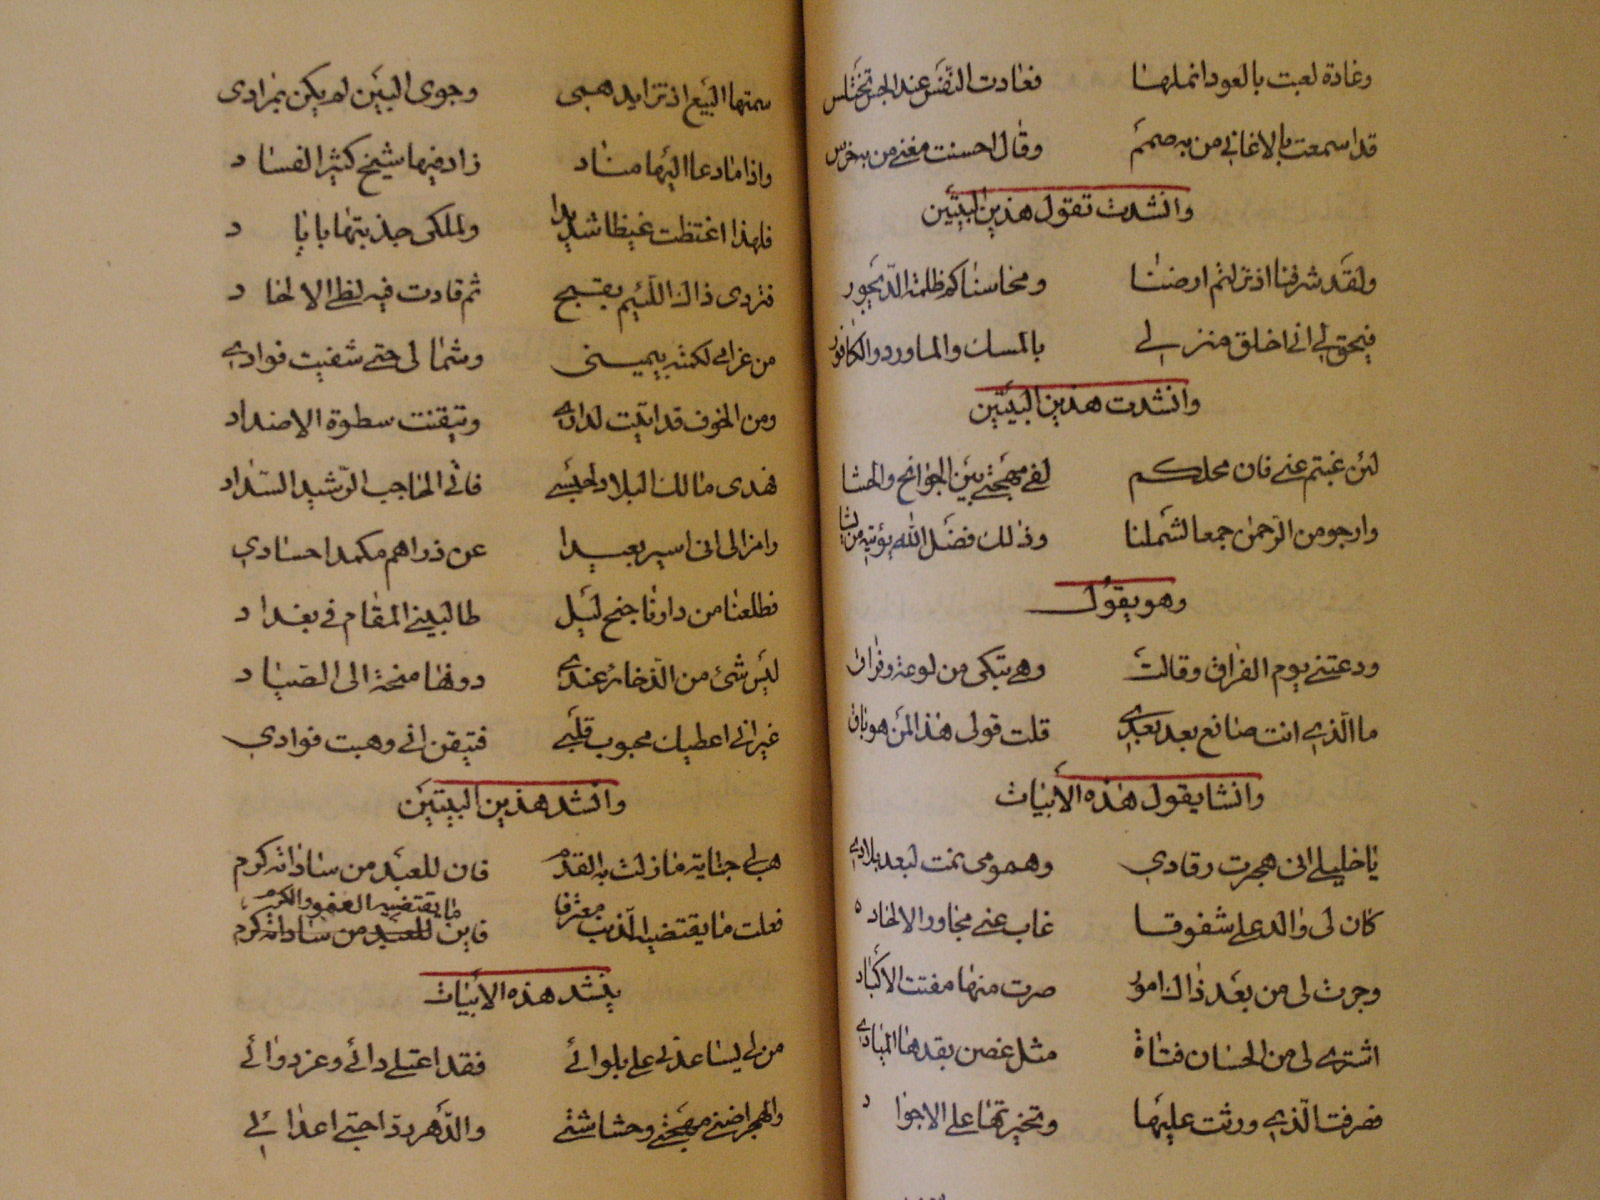 وغادة لعبت بالعود انملها فعادت النفس عند الجس تختلس
قد اسمعت بالاغاني من به صمم وقال احسنت مغني من به خرس
وانشدت تقول هذين البيتين
ولقد شرفنا اذ نزلتم ارضنا ومحا سناكم ظلمة الديجور
فيحق لي اني اخلق منزلي بالمسك والماورد والكافور
وانشدت هذين البيتين
لئن غبتم عني فان محلكم لفي مهجتي بين الجوانح والحشا
وارجو من الرحمن جمعا لشملنا وذلك فضل الله يؤتيه من يشا
وهو يقول
ودعتني يوم الفراق وقالت وهي تبكي من لوعة وفراق
ما الذي انت صانع بعد بعدي قلت قولي هذا لمن هو باق
وانشا يقول هذه الابيات
يا خليلي اني هجرت رقادي وهمومي نمت لبعد بلادي
كان لي والد علي شفوقا غاب عني مجاور الالحاد
وجرت لي من بعد ذاك امور صرت منها مفتت الاكباد
اشترى لي من الحسان فتاة مثل غصن بقدها المياد
فصرفت الذي ورثت عليها وتخيرتها على الاجواد
سمتها البيع اذ تزايد همي وجوى البين لم يكن بمرادي
واذا ما دعا اليها مناد زاد فيها شيخ كثير الفساد
فلهذا اغتظت غيظا شديدا ولملكي جذبتها بايادي
فتردى ذاك اللئيم بقبح ثم قادت فيه لظى الالحاد
من غرامي لكمته بيميني وشمالي حتى شفيت فوادي
ومن الخوف قد اتيت لداري وتيقنت سطوة الاضداد
فهدى مالك البلاد لحبسي فاتى الحاجب الرشيد السداد
وامرالى انى اسير بعيدا عن ذراهم مكمدا حسادي
فطلعنا من دارنا جنح ليل طالبين المقام في بغداد
ليس شئ من الذخائر عندي دونها منحة الى الصياد
غير اني اعطيك محبوب قلبي فتيقن اني وهبت فوادي
وانشد هذين البيتين
هب لي جناية ما زلت به القدم فان للعبد من ساداته كرم
فعلت ما يقتضيه الذنب معترفا فاين ما يقتضيه العفو والكرم
للعبد من ساداته كرم
ينشد هذه الابيات
من لي يساعدني على بلوائي فقد اعتلى دائي وعز دوائي
والهجر اضنى مهجتي وحشاشتي والدهر رد احبتي اعدائي